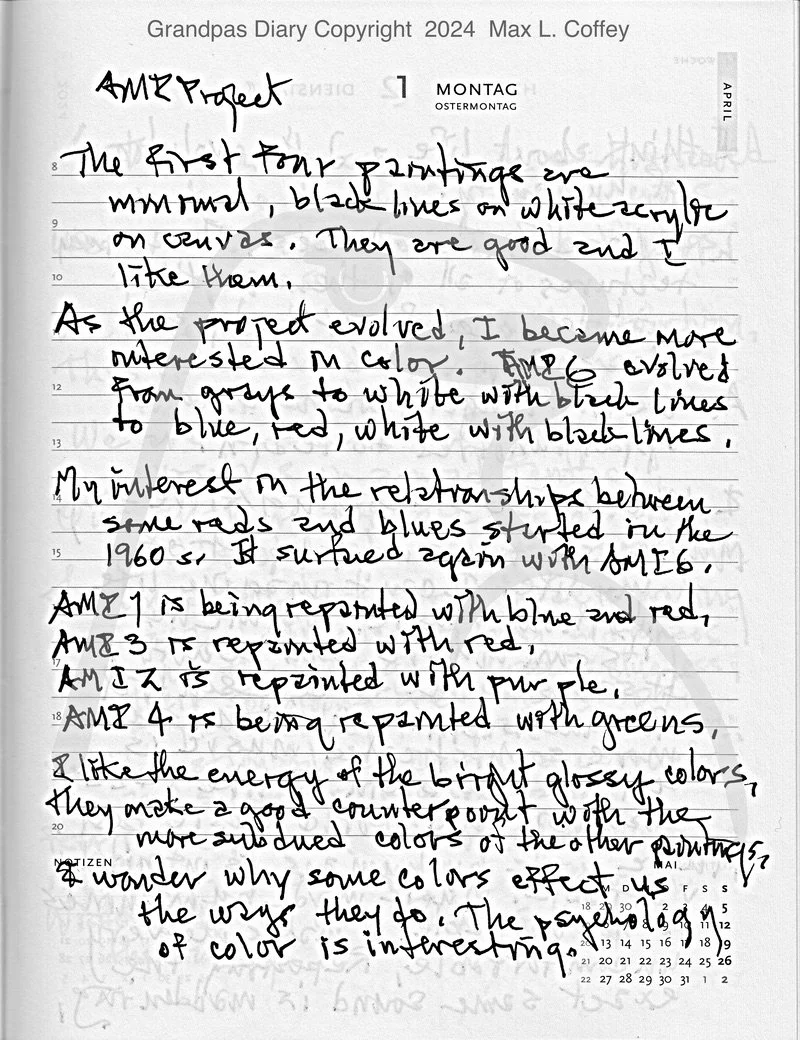 Grandpas Diary Copyright 2024 Max L. Coffey
AMI Project
1 MONTAG
OSTERMONTAG
APRIL
8 The first four paintings are
minimal, black lines on white acrylic
9 on canvas. They are good and I
10 like them.
As the project evolved, I became more
interested in color. AMI6 evolved
12 from grays to white with black lines
13 to blue, red, white with black lines.
14 My interest in the relationships between
some reds and blues started in the
15 1960s. It surfaced again with AMI6.
AMI 1 is being repainted with blue and red,
AMI 3 is repainted with red,
17 AMI 2 is repainted with purple,
18 AMI 4 is being repainted with greens.
I like the energy of the bright glossy colors,
they make a good counterpoint with the
20 more subdued colors of the other paintings,
NOTIZEN
MAI
I wonder why some colors effect us
the ways they do. The psychology
of color is interesting.
M D F S S
18 29 30 2 3 4 5
12
20 13 14 15 16 17 18 19
21 20 21 22 23 24 25 26
22 27 28 29 30 31 1 2